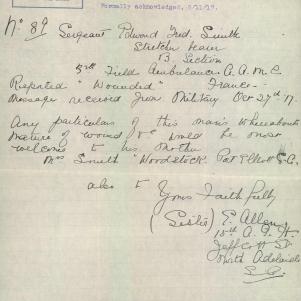 Formally acknowledged, 8/11/17.
No 89 Sergeant Edward Fred. Smith
Stretcher Team
13 Section
3rd Field Ambulance. A.A.M.C
Reported "Wounded" France -
Message received from Military Oct 27th 17.
Any particulars of this man's whereabouts
nature of wound &c would be most
welcome to his Mother
Mrs Smith "Woodstock" Port Elliott S.A.
also to
Yours Faithfully
(Sister) E. Allen
15th A.G.H.
Jeffcott St
North Adelaide
S.A.